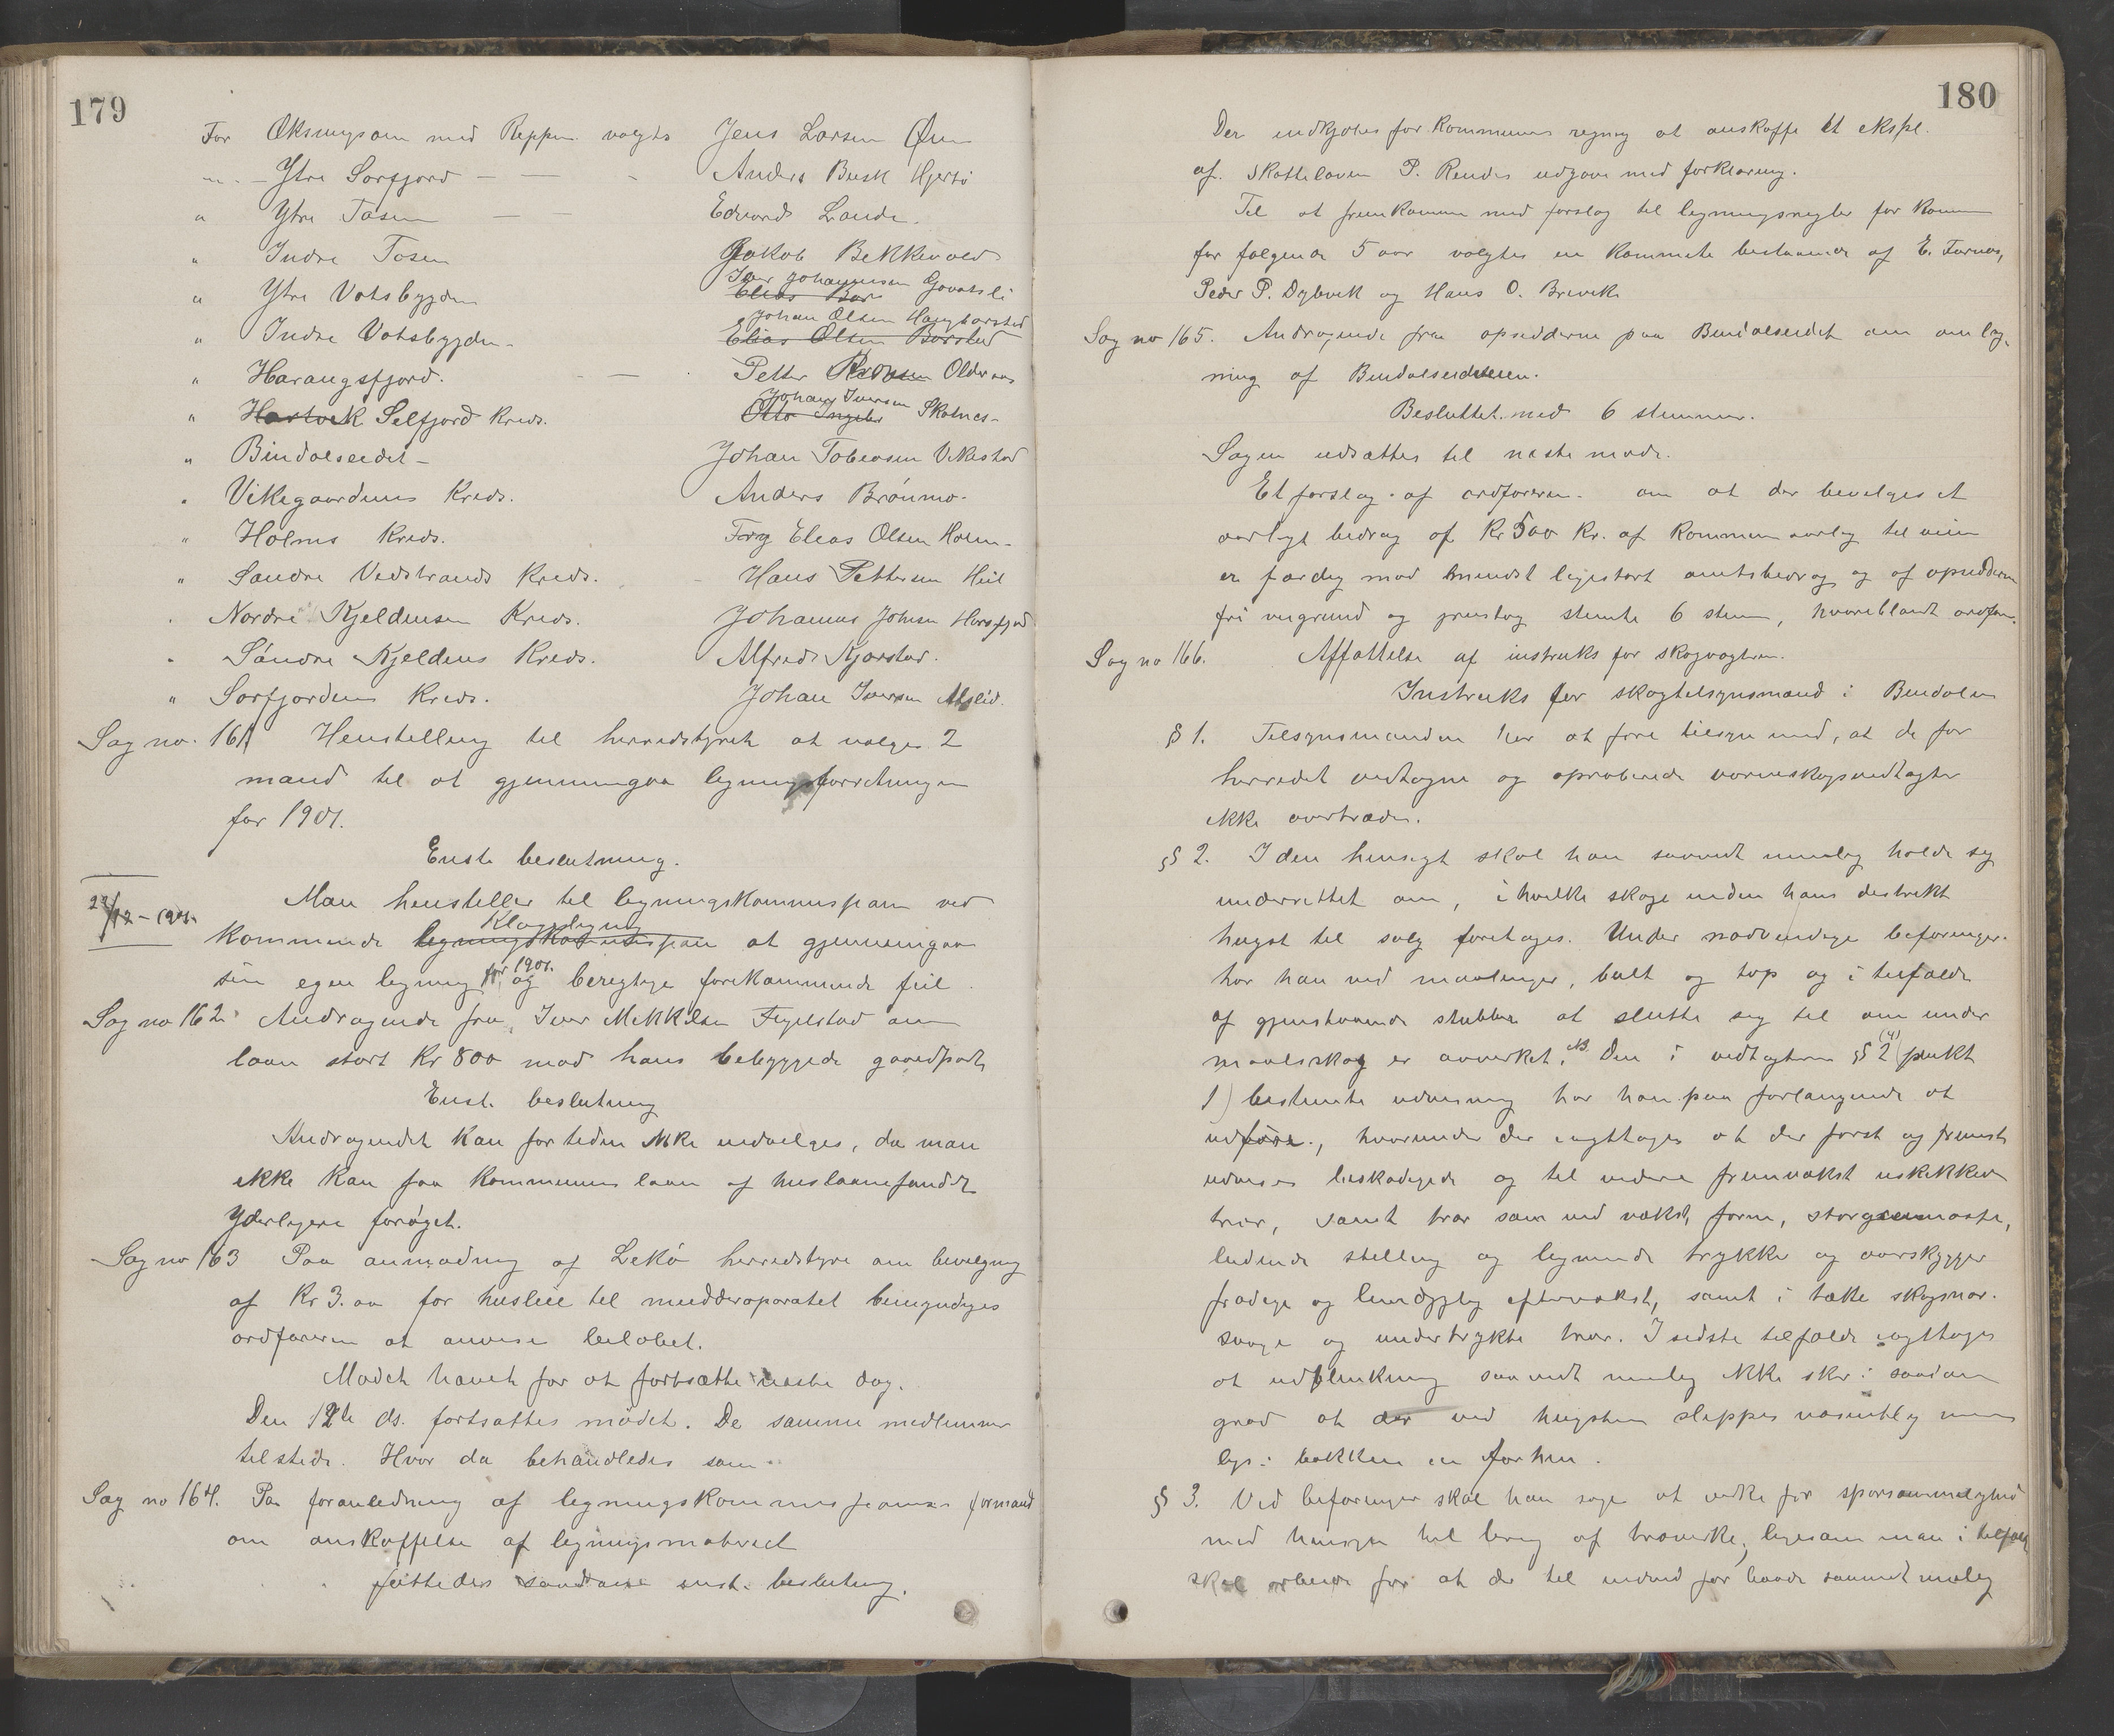 179
For Øksningøen med Reppen valgtes Jens Larsen Øren
" - Ytre Sørfjord - — - Anders Busk Hjertø
" Ytre Tosen — — Edvard Lande.
" Indre Tosen Jakob Bekkevold
" Ytre Vatsbygden Elias Bør Iver Johannesen Gvatsli
" Indre Vatsbygden - Elias Olsen Børsted Johan Olsen
" Harangsfjord. — Petter Olderaas
" Hartvik Selfjord Kreds. Otto Johan Iversen Skotnes -
" Bindalseidet - Johan Tobiasen Vikestad
" Vikegaardens Kreds. Anders Brønmo.
" Holms Kreds. Elias Olsen Holm -
" Søndre Vedstrands Kreds. - Hans Pettersen Heil
" Nordre Kjeldens Kreds. Johannes Johnsen Horsfjord
" Søndre Kjeldens Kreds. Alfred Kjørstad.
" Sørfjordens Kreds. Johan Iversen
Sag no. 161 Henstilling til herredstyret at vælge 2
mænd til at gjennemgaa ligningsforretningen
for 1901.
Enst. beslutning.
Man henstiller til ligningskommissionen ved
12 - 1901.
Kommende ligningskommission Klageligning at gjennemgaa
sin egen ligning for 1901. og berigtige forekommende feil.
Sag no 162 Andragende fra Iver Mikkelsen om
laan stort Kr 800 mod hans bebyggede gaardpart
Enst. beslutning
Andragendet kan for tiden ikke indvilges, da man
ikke kan faa Kommunens laan af huslaanefondet
yderligere forøget.
Sag no 163 Paa anmodning af Lekø herredstyre om bevilgning
af Kr 3.00 for husleie til mudderaparatet bemyndiges
ordføreren at anvise beløbet.
Mødet hævet for at fortsætte næste dag.
Den 12te ds. fortsattes mødet. De samme medlemmer
tilstede. Hvor da behandledes som
Sag no 164. Paa foranledning af ligningskommissionens formand
om anskaffelse af ligningsmateriel
fattedes saadan enst. beslutning.
180
Der indkjøbes for Kommunens regning at anskaffe et ekspl.
af Skatteloven P. Rendes udgave med forklaring.
Til at fremkomme med forslag til ligningsregler for Kommunen
for følgende 5 aar valgtes en Kommite bestaaende af E. Fornes,
Peder P. Dybvik og Hans O. Brevik
Sag no 165. Andragende fra opsidderne paa Bindalseidet om omlæg-
ning af Bindalseidveien.
Besluttet med 6 stemmer.
Sagen udsættes til næste møde.
Et forslag af ordføreren om at der bevilges et
aarligt bidrag af Kr 500 Kr. af Kommunen aarlig til veien
er færdig mod mindst ligestort amtsbidrag og af opsidderne
fri veigrund og grustag stemte 6 stem, hvoriblandt ordfør.
Sag no 166. Affattelse af instruks for skogvogteren.
Instruks for skogtilsynsmand i Bindalen
§ 1. Tilsynsmanden har at føre tilsyn med, at de for
herredet vedtagne og aproberede verneskogsvedtægter
ikke overtrædes.
§ 2. I den hensigt skal han saavidt mulig holde sig
underrettet om, i hvilke skoge inden hans distrikt
hugst til salg foretages. Under nødvendige befaringer
har han ved maalinger, bult og top og i tilfælde
af gjenstaaende stubber at slutte sig til om under
maalsskog er avvirket. NB. Den i vedtægterne § 2 (4) punkt
1) bestemte udvisning har han paa forlangende at
udføre, hvorunder der iagttages at der først og fremst
udvises beskadigede og til videre fremvækst uskikkede
trær, samt trær som ved vækst, form, storgrenaste,
ludende stilling og lignende trykker og overskygger
frodige og livsdygtig eftervækst, samt i tætte skognar
svage og undertrykte trær. I sidste tilfælde iagttages
at udblinkning saavidt mulig ikke sker i saadan
grad at der ved hugsten slippes væsentlig mere
lys i bakken en forhen.
§ 3. Ved befaringer skal han søge at virke for sparsommelighed
med hensyn til brug af trævirke, ligesom man i tilfælde
skal arbeide for at der til indved for baade saavidt mulig